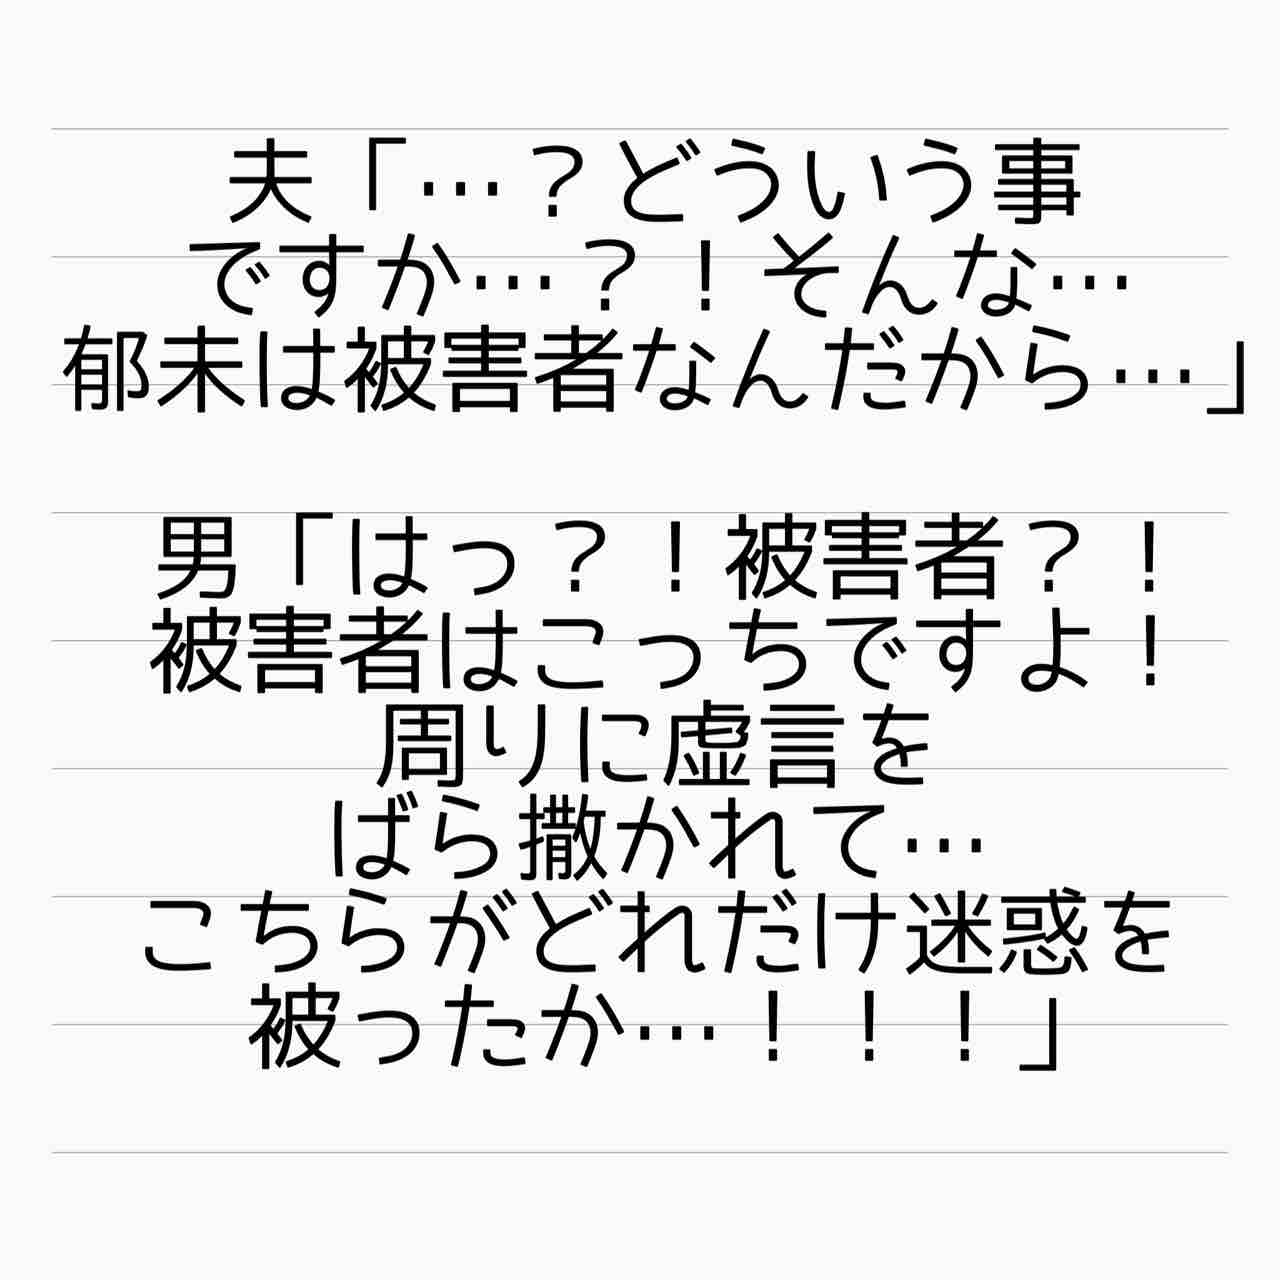 夫「…？どういう事
ですか…？！そんな…
郁未は被害者なんだから…」
男「はっ？！被害者？！
被害者はこっちですよ！
周りに虚言を
ばら撒かれて…
こちらがどれだけ迷惑を
被ったか…！！！」